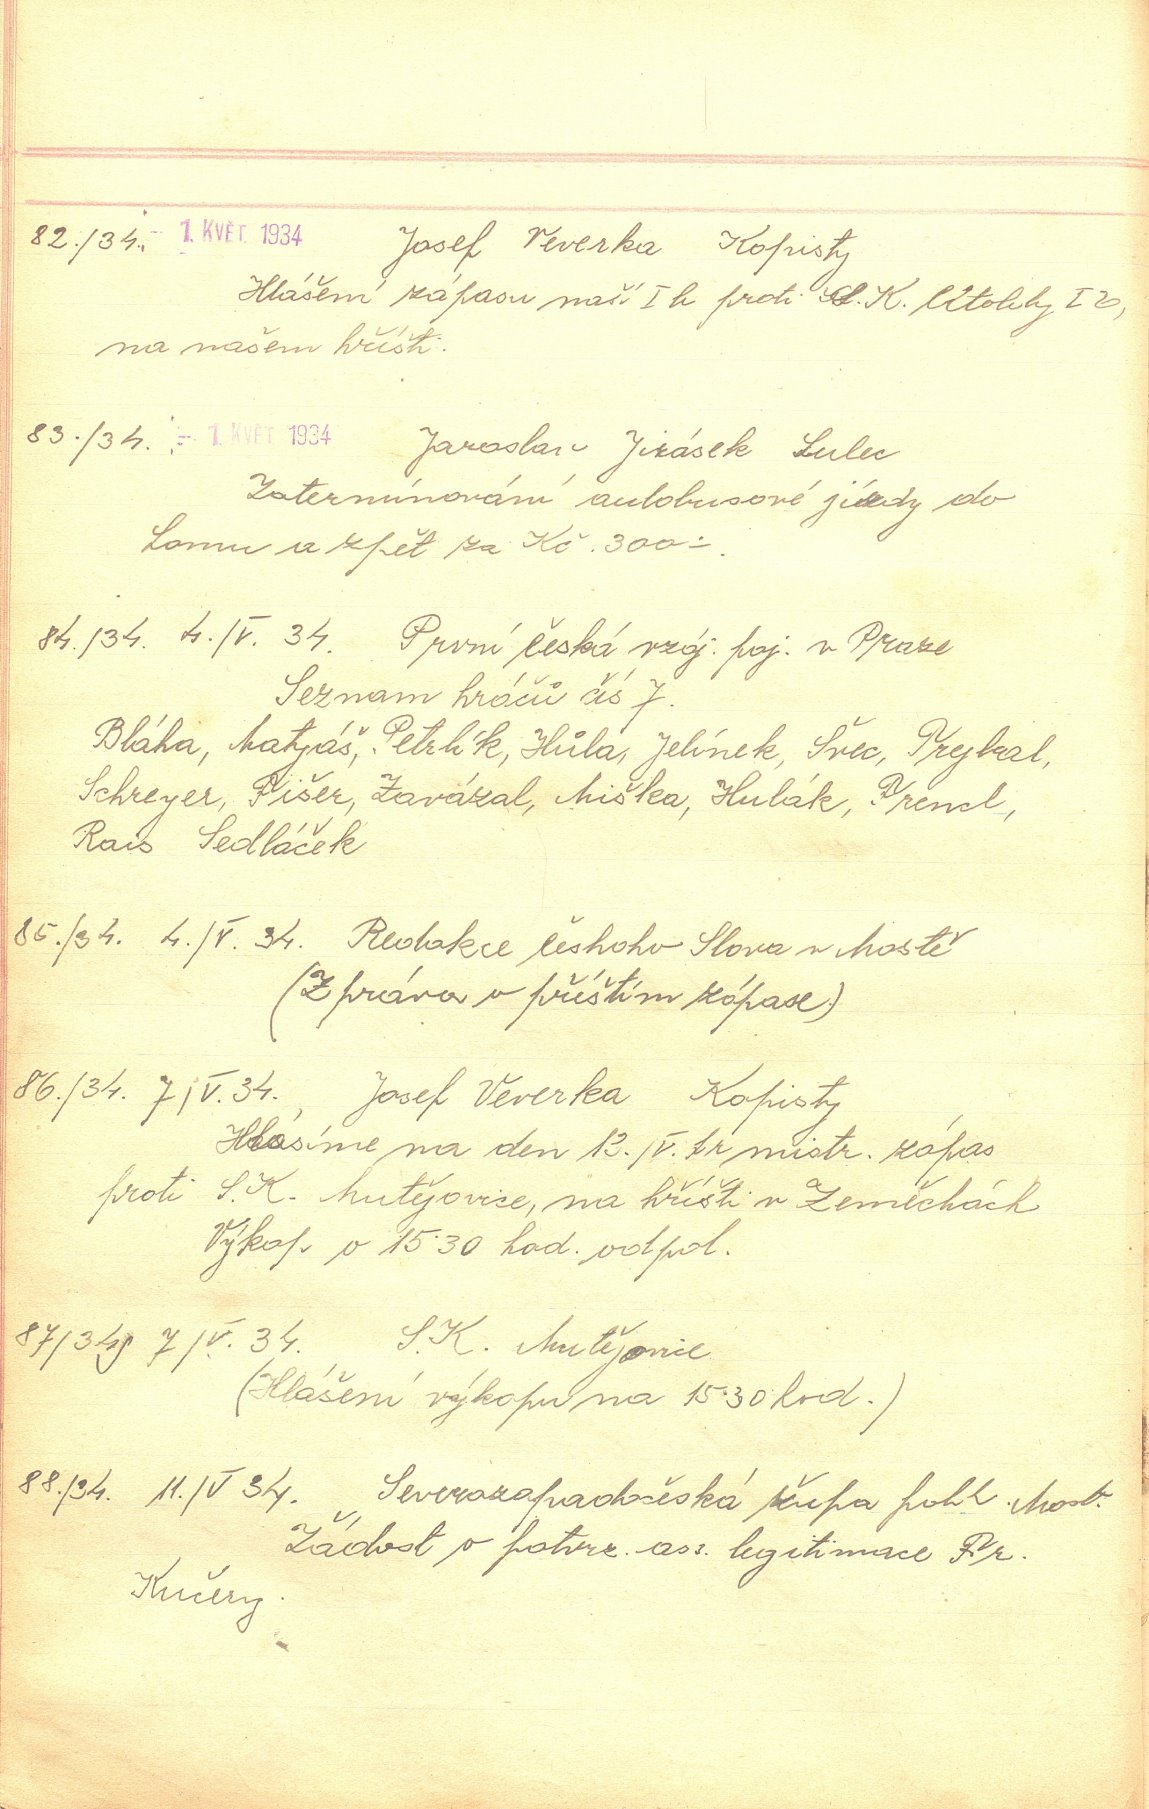 82./34. - 1. KVĚT. 1934 Josef Veverka Kopisty
Hlášení zápasu naší I b proti S.K. Litohlý I b,
na našem hřišti.
83./34. - 1. KVĚT 1934 Jaroslav Jirásek Sulec
Zatermínování autobusové jízdy do
Lomu a zpět za Kč. 300.-.
84./34. 4./V. 34. První česká vzáj. poj. v Praze
Seznam hráčů čís 7.
Bláha, Matyáš, Petrlík, Hůla, Jelínek, Švec, Prejkzal,
Schreyer, Fišer, Zavázal, Miška, Hulák, Frencl,
Rais Sedláček
85./34. 4./V. 34. Redakce Českoho Slova v Mostě
(Zpráva o příštím zápase)
86./34. 7/V. 34. Josef Veverka Kopisty
Hlásíme na den 13./V. tr mistr. zápas
proti S.K. Mutějovice, na hřišti v Zeměchách
Výkop. o 15.30 hod. odpol.
87/34 7/V. 34. S.K. Mutějovice
(Hlášení výkopu na 15.30 hod.)
88./34. 11./V 34. Severozapadočeská župa Most.
Žádost o potvrz. ass. legitimace Fr.
Kučery.